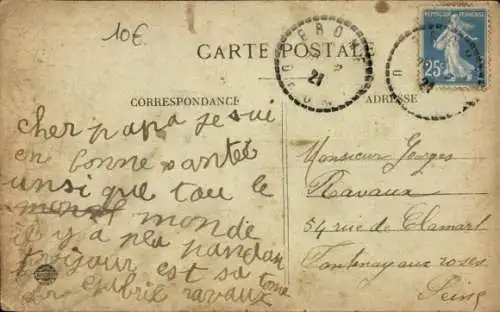 10€
CARTE POSTALE
CORRESPONDANCE
ADRESSE
RÉPUBLIQUE FRANÇAISE
25c
21
21
cher papa je sui
en bonne santée
unsi que tou le
monde
il y a peu pandan
toujour est sa
ravaux
Monsieur Georges
Ravaux
54 rue de Clamart
Fontenay aux roses
Seine